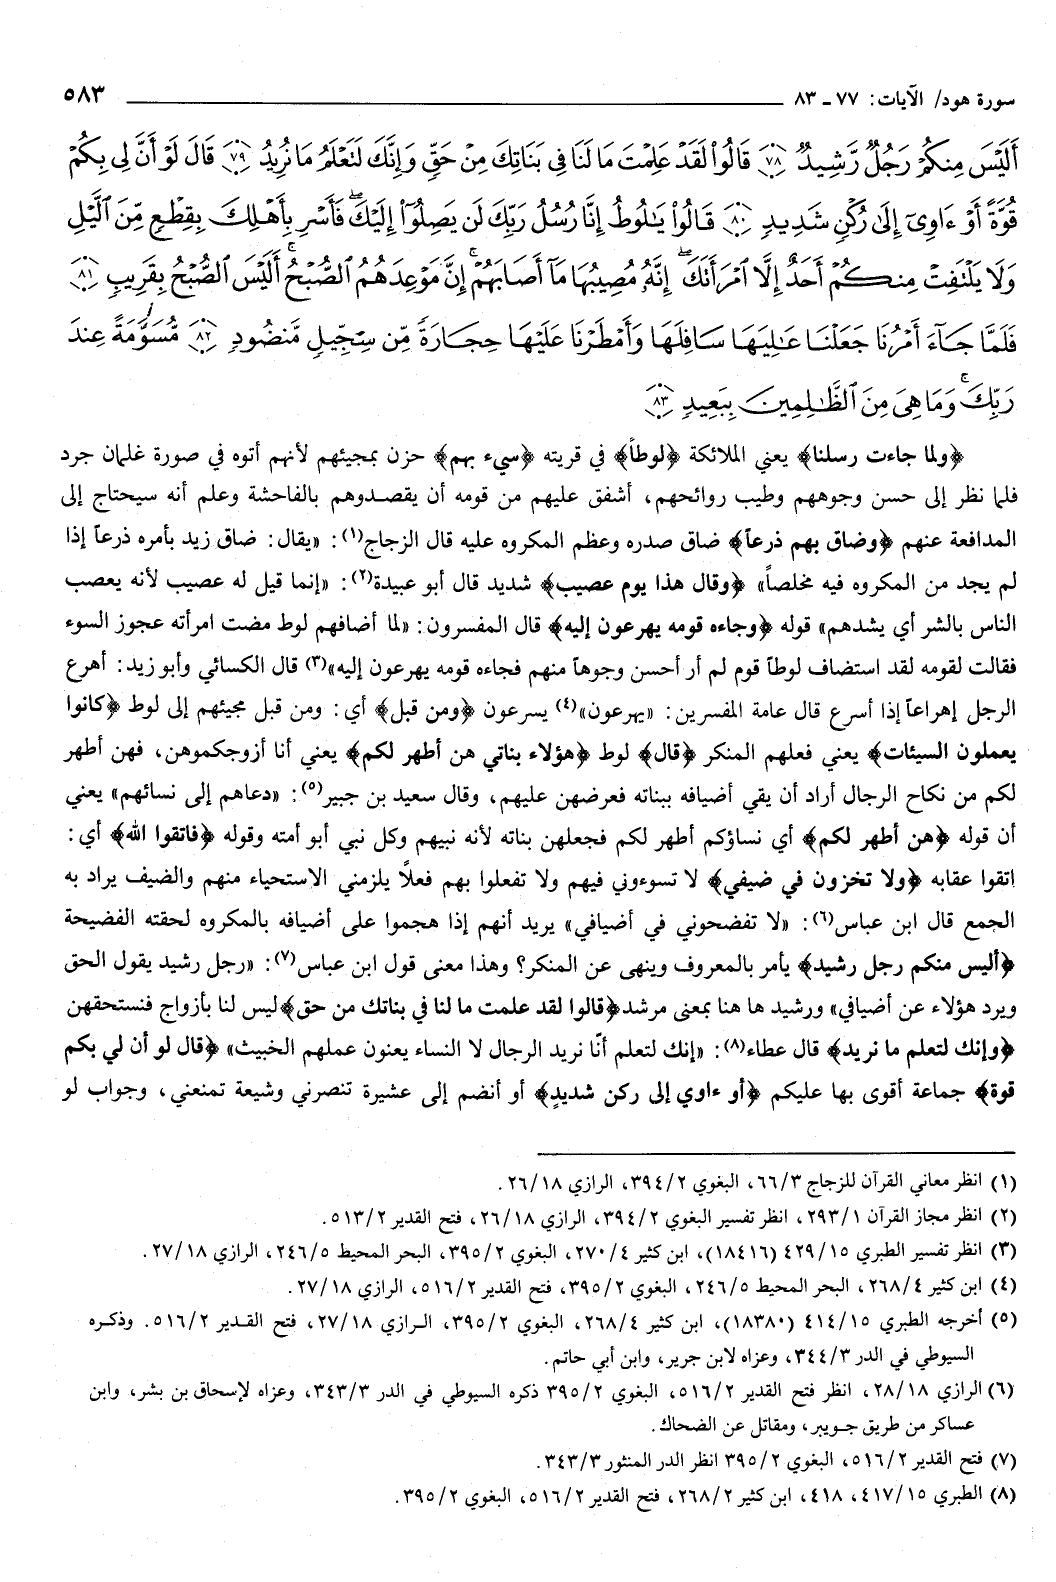 سورة هود/ الآيات: ٧٧ ـ ٨٣ ٥٨٣
أَلَيْسَ مِنكُمْ رَجُلٌ رَّشِيدٌ ﴿٧٨﴾ قَالُوا۟ لَقَدْ عَلِمْتَ مَا لَنَا فِى بَنَاتِكَ مِنْ حَقٍّ وَإِنَّكَ لَتَعْلَمُ مَا نُرِيدُ ﴿٧٩﴾ قَالَ لَوْ أَنَّ لِى بِكُمْ
قُوَّةً أَوْ ءَاوِىٓ إِلَىٰ رُكْنٍ شَدِيدٍ ﴿٨٠﴾ قَالُوا۟ يَـٰلُوطُ إِنَّا رُسُلُ رَبِّكَ لَن يَصِلُوٓا۟ إِلَيْكَ ۖ فَأَسْرِ بِأَهْلِكَ بِقِطْعٍ مِّنَ ٱلَّيْلِ
وَلَا يَلْتَفِتْ مِنكُمْ أَحَدٌ إِلَّا ٱمْرَأَتَكَ ۖ إِنَّهُۥ مُصِيبُهَا مَآ أَصَابَهُمْ ۚ إِنَّ مَوْعِدَهُمُ ٱلصُّبْحُ ۚ أَلَيْسَ ٱلصُّبْحُ بِقَرِيبٍ ﴿٨١﴾
فَلَمَّا جَآءَ أَمْرُنَا جَعَلْنَا عَـٰلِيَهَا سَافِلَهَا وَأَمْطَرْنَا عَلَيْهَا حِجَارَةً مِّن سِجِّيلٍ مَّنضُودٍ ﴿٨٢﴾ مُّسَوَّمَةً عِندَ
رَبِّكَ ۖ وَمَا هِىَ مِنَ ٱلظَّـٰلِمِينَ بِبَعِيدٍ ﴿٨٣﴾
﴿ولما جاءت رسلنا﴾ يعني الملائكة ﴿لوطاً﴾ في قريته ﴿سيء بهم﴾ حزن بمجيئهم لأنهم أتوه في صورة غلمان جرد
فلما نظر إلى حسن وجوههم وطيب روائحهم، أشفق عليهم من قومه أن يقصدوهم بالفاحشة وعلم أنه سيحتاج إلى
المدافعة عنهم ﴿وضاق بهم ذرعاً﴾ ضاق صدره وعظم المكروه عليه قال الزجاج(١): «يقال: ضاق زيد بأمره ذرعاً إذا
لم يجد من المكروه فيه مخلصاً» ﴿وقال هذا يوم عصيب﴾ شديد قال أبو عبيدة(٢): «إنما قيل له عصيب لأنه يعصب
الناس بالشر أي يشدهم» قوله ﴿وجاءه قومه يهرعون إليه﴾ قال المفسرون: «لما أضافهم لوط مضت امرأته عجوز السوء
فقالت لقومه لقد استضاف لوطاً قوم لم أر أحسن وجوهاً منهم فجاءه قومه يهرعون إليه»(٣) قال الكسائي وأبو زيد: أهرع
الرجل إهراعاً إذا أسرع قال عامة المفسرين: «يهرعون»(٤) يسرعون ﴿ومن قبل﴾ أي: ومن قبل مجيئهم إلى لوط ﴿كانوا
يعملون السيئات﴾ يعني فعلهم المنكر ﴿قال﴾ لوط ﴿هؤلاء بناتي هن أطهر لكم﴾ يعني أنا أزوجكموهن، فهن أطهر
لكم من نكاح الرجال أراد أن يقي أضيافه ببناته فعرضهن عليهم، وقال سعيد بن جبير(٥): «دعاهم إلى نسائهم» يعني
أن قوله ﴿هن أطهر لكم﴾ أي نساؤكم أطهر لكم فجعلهن بناته لأنه نبيهم وكل نبي أبو أمته وقوله ﴿فاتقوا الله﴾ أي:
اتقوا عقابه ﴿ولا تخزون في ضيفي﴾ لا تسوءوني فيهم ولا تفعلوا بهم فعلاً يلزمني الاستحياء منهم والضيف يراد به
الجمع قال ابن عباس(٦): «لا تفضحوني في أضيافي» يريد أنهم إذا هجموا على أضيافه بالمكروه لحقته الفضيحة
﴿أليس منكم رجل رشيد﴾ يأمر بالمعروف وينهى عن المنكر؟ وهذا معنى قول ابن عباس(٧): «رجل رشيد يقول الحق
ويرد هؤلاء عن أضيافي» ورشيد ها هنا بمعنى مرشد﴿قالوا لقد علمت ما لنا في بناتك من حق﴾ليس لنا بأزواج فنستحقهن
﴿وإنك لتعلم ما نريد﴾ قال عطاء(٨): «إنك لتعلم أنّا نريد الرجال لا النساء يعنون عملهم الخبيث» ﴿قال لو أن لي بكم
قوة﴾ جماعة أقوى بها عليكم ﴿أو ءاوي إلى ركن شديدٍ﴾ أو أنضم إلى عشيرة تنصرني وشيعة تمنعني، وجواب لو
(١) انظر معاني القرآن للزجاج ٦٦/٣، البغوي ٣٩٤/٢، الرازي ٢٦/١٨.
(٢) انظر مجاز القرآن ٢٩٣/١، انظر تفسير البغوي ٣٩٤/٢، الرازي ٢٦/١٨، فتح القدير ٥١٣/٢.
(٣) انظر تفسير الطبري ٤٢٩/١٥ (١٨٤١٦)، ابن كثير ٢٧٠/٤، البغوي ٣٩٥/٢، البحر المحيط ٢٤٦/٥، الرازي ٢٧/١٨.
(٤) ابن كثير ٢٦٨/٤، البحر المحيط ٢٤٦/٥، البغوي ٣٩٥/٢، فتح القدير ٥١٦/٢، الرازي ٢٧/١٨.
(٥) أخرجه الطبري ٤١٤/١٥ (١٨٣٨٠)، ابن كثير ٢٦٨/٤، البغوي ٣٩٥/٢، الرازي ٢٧/١٨، فتح القدير ٥١٦/٢. وذكره
السيوطي في الدر ٣٤٤/٣، وعزاه لابن جرير، وابن أبي حاتم.
(٦) الرازي ٢٨/١٨، انظر فتح القدير ٥١٦/٢، البغوي ٣٩٥/٢ ذكره السيوطي في الدر ٣٤٣/٣، وعزاه لإسحاق بن بشر، وابن
عساكر من طريق جويبر، ومقاتل عن الضحاك.
(٧) فتح القدير ٥١٦/٢، البغوي ٣٩٥/٢ انظر الدر المنثور ٣٤٣/٣.
(٨) الطبري ٤١٧/١٥، ٤١٨، ابن كثير ٢٦٨/٢، فتح القدير ٥١٦/٢، البغوي ٣٩٥/٢.